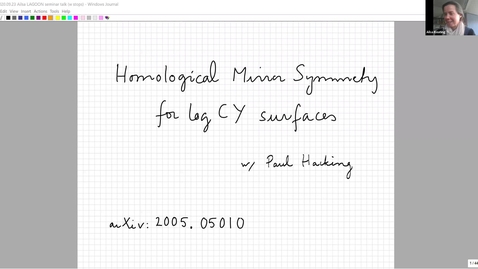 Windows Journal
File Edit View Insert Actions Tools Help
Alisa Keating
Homological Mirror Symmetry
for log CY surfaces
w/ Paul Hacking
arXiv: 2005.05010